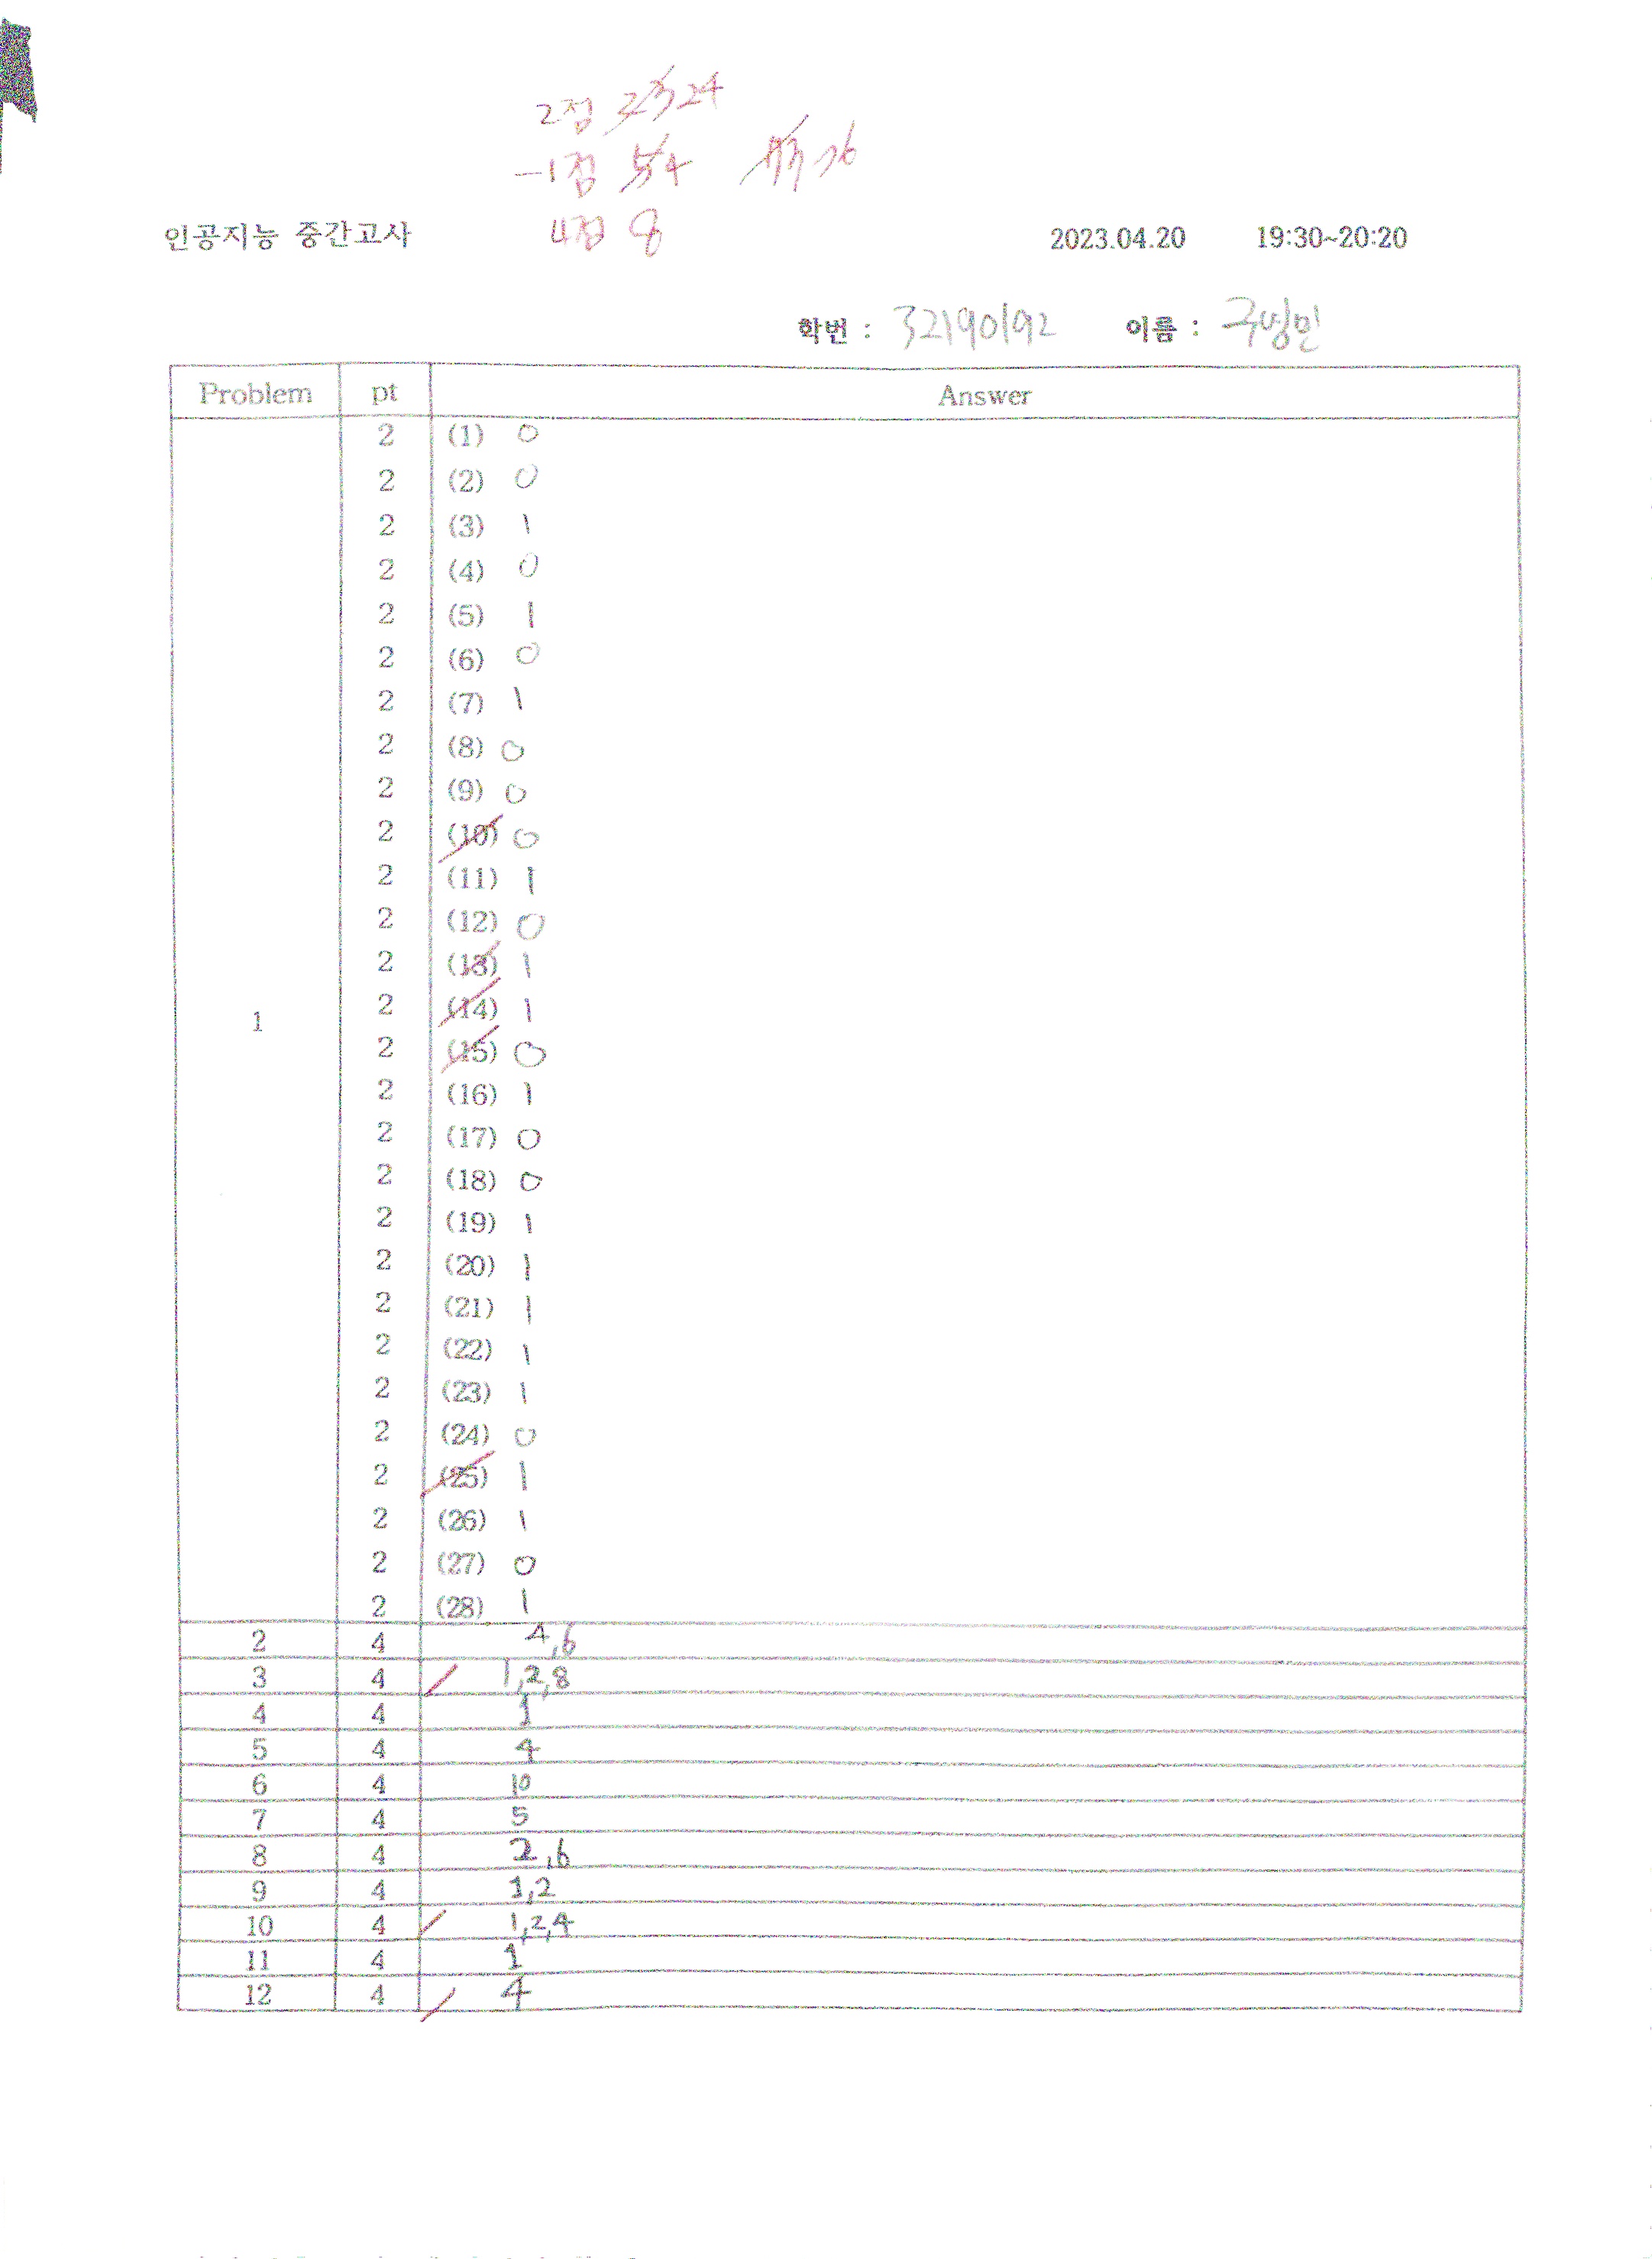 2점 23 24
-1점 5 4 73 76
4점 8
인공지능 중간고사 2023.04.20 19:30~20:20
학번 : 32190192 이름 :
Problem pt Answer
2 (1) 0
2 (2) 0
2 (3) 1
2 (4) 0
2 (5) 1
2 (6) 0
2 (7) 1
2 (8) 0
2 (9) 0
2 (10) 0
2 (11) 1
2 (12) 0
2 (13) 1
1 2 (14) 1
2 (15) 0
2 (16) 1
2 (17) 0
2 (18) 0
2 (19) 1
2 (20) 1
2 (21) 1
2 (22) 1
2 (23) 1
2 (24) 0
2 (25) 1
2 (26) 1
2 (27) 0
2 (28) 1
2 4 4,6
3 4 1,2,8
4 4 1
5 4 4
6 4 10
7 4 5
8 4 2,6
9 4 1,2
10 4 1,2,4
11 4 1
12 4 4